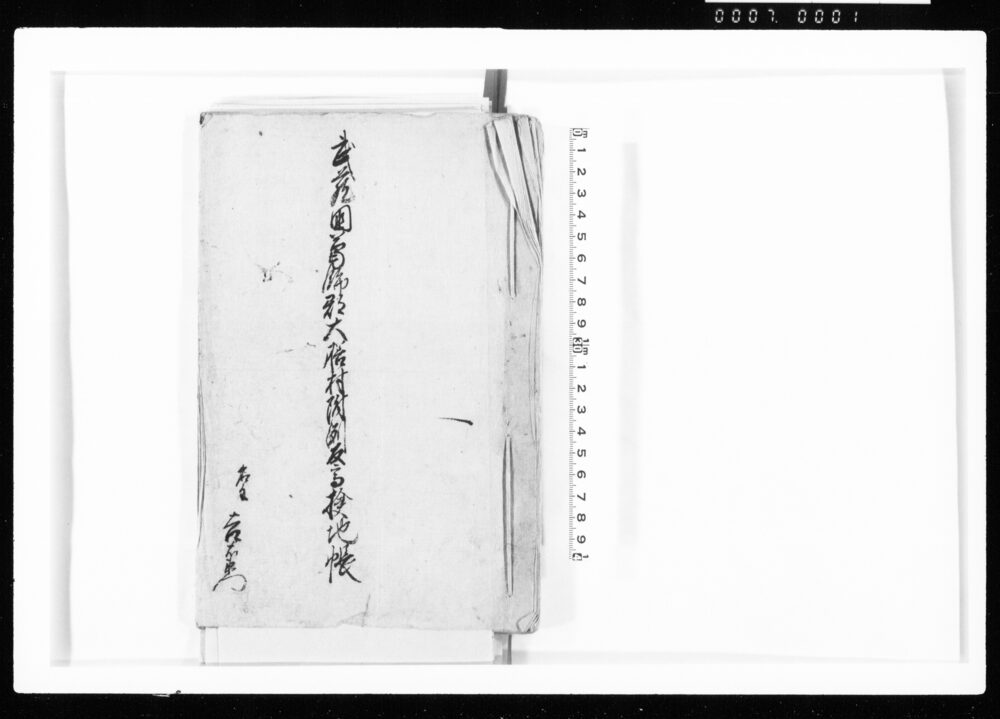 0007. 0001
武蔵国葛飾郡大膳村
検地帳
一
名主
吉右衛門
0 1 2 3 4 5 6 7 8 9 10 1 2 3 4 5 6 7 8 9